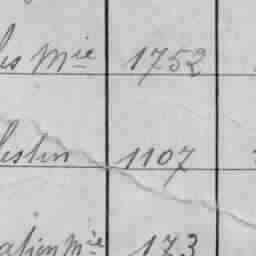 les Mie 1752
lestin 1107
atien Mie 173